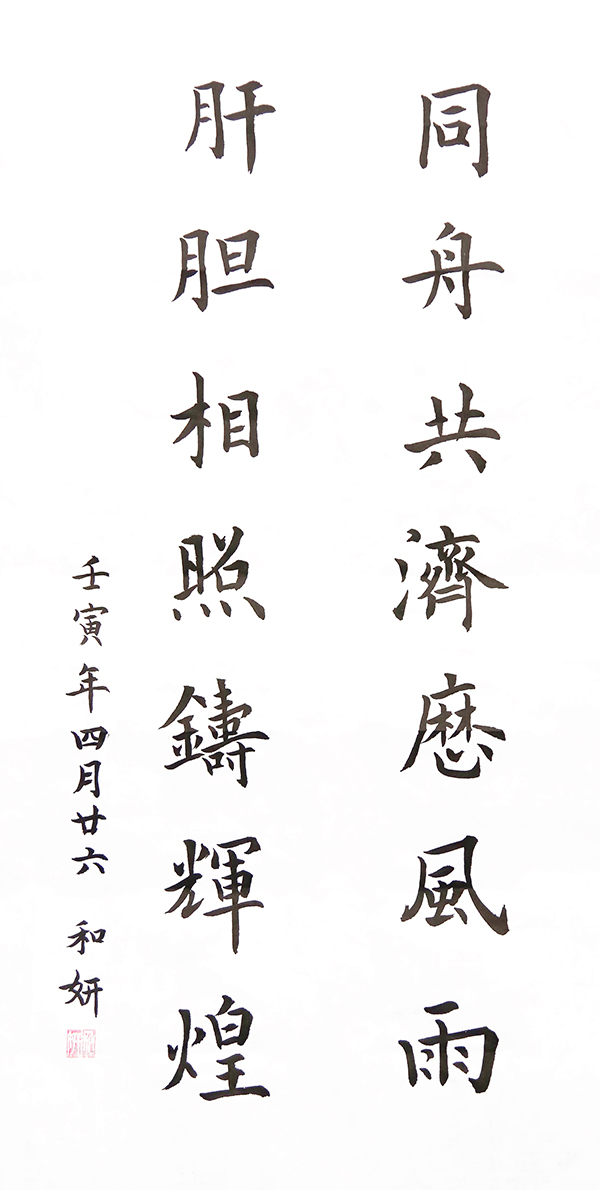 同舟共濟歷風雨
肝胆相照鑄輝煌
壬寅年四月廿六 和妍